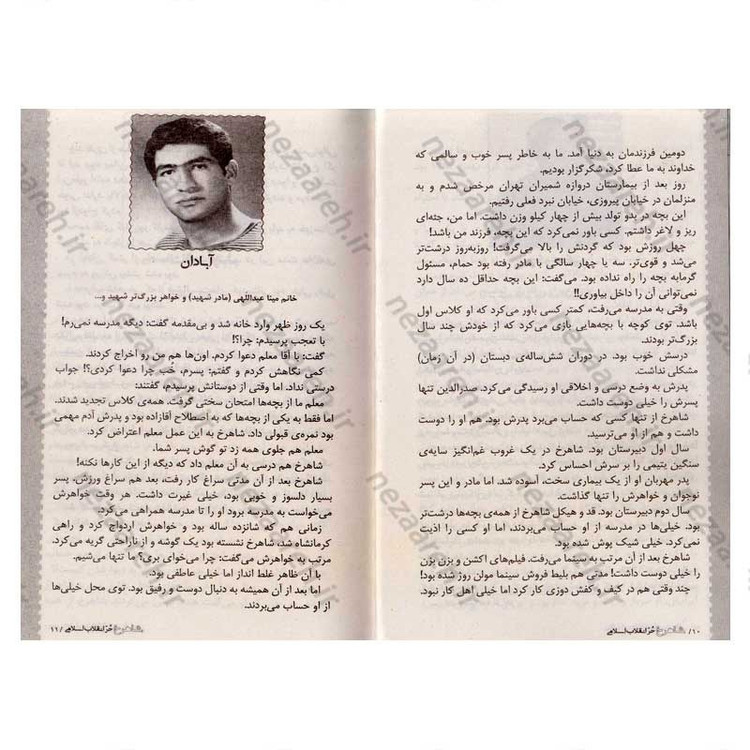 دومین فرزندمان به دنیا آمد. ما به خاطر پسر خوب و سالمی که
خداوند به ما عطا کرد، شکرگزار بودیم.
روز بعد از بیمارستان دروازه شمیران تهران مرخص شدم و به
منزلمان در خیابان پیروزی، خیابان نبرد فعلی رفتیم.
این بچه در بدو تولد بیش از چهار کیلو وزن داشت. اما من، جثه‌ای
ریز و لاغر داشتم. کسی باور نمی‌کرد که این بچه، فرزند من باشد!
چهل روزش بود که گردنش را بالا می‌گرفت! روزبه‌روز درشت‌تر
می‌شد و قوی‌تر. سه یا چهار سالگی با مادر رفته بود حمام، مسئول
گرمابه بچه را راه نداده بود. می‌گفت: این بچه حداقل ده سال دارد
نمی‌توانی آن را داخل بیاوری!!
وقتی به مدرسه می‌رفت، کمتر کسی باور می‌کرد که او کلاس اول
باشد. توی کوچه با بچه‌هایی بازی می‌کرد که از خودش چند سال
بزرگ‌تر بودند.
درسش خوب بود. در دوران شش‌ساله‌ی دبستان (در آن زمان)
مشکلی نداشت.
پدرش به وضع درسی و اخلاقی او رسیدگی می‌کرد. صدرالدین تنها
پسرش را خیلی دوست داشت.
شاهرخ از تنها کسی که حساب می‌برد پدرش بود. هم او را دوست
داشت و هم از او می‌ترسید.
سال اول دبیرستان بود. شاهرخ در یک غروب غم‌انگیز سایه‌ی
سنگین یتیمی را بر سرش احساس کرد.
پدر مهربان او از یک بیماری سخت، آسوده شد. اما مادر و این پسر
نوجوان و خواهرش را تنها گذاشت.
سال دوم دبیرستان بود. قد و هیکل شاهرخ از همه‌ی بچه‌ها درشت‌تر
بود. خیلی‌ها در مدرسه از او حساب می‌بردند، اما او کسی را اذیت
نمی‌کرد. خیلی شیک پوش شده بود.
شاهرخ بعد از آن مرتب به سینما می‌رفت. فیلم‌های اکشن و بزن بزن
را خیلی دوست داشت! مدتی هم بلیط فروش سینما مولن روژ شده بود!
چند وقتی هم در کیف و کفش دوزی کار کرد اما خیلی اهل کار نبود.
۱۰/ شاهرخ حُر انقلاب اسلامی
آبادان
خانم مینا عبداللهی (مادر شهید) و خواهر بزرگ‌تر شهید و...
یک روز ظهر وارد خانه شد و بی‌مقدمه گفت: دیگه مدرسه نمی‌رم!
با تعجب پرسیدم: چرا؟!
گفت: با آقا معلم دعوا کردم. اون‌ها هم من رو اخراج کردند.
کمی نگاهش کردم و گفتم: پسرم، خب چرا دعوا کردی؟! جواب
درستی نداد. اما وقتی از دوستانش پرسیدم، گفتند:
معلم ما از بچه‌ها امتحان سختی گرفت. همه‌ی کلاس تجدید شدند.
اما فقط به یکی از بچه‌ها که به اصطلاح آقازاده بود و پدرش آدم مهمی
بود نمره‌ی قبولی داد. شاهرخ به این عمل معلم اعتراض کرد.
معلم هم جلوی همه زد تو گوش پسر شما.
شاهرخ هم درسی به آن معلم داد که دیگه از این کارها نکنه!
شاهرخ بعد از آن مدتی سراغ کار رفت، بعد هم سراغ ورزش. پسر
بسیار دلسوز و خوبی بود، خیلی غیرت داشت. هر وقت خواهرش
می‌خواست به مدرسه برود او را تا مدرسه همراهی می‌کرد.
زمانی هم که شانزده ساله بود و خواهرش ازدواج کرد و راهی
کرمانشاه شد، شاهرخ نشسته بود یک گوشه و از ناراحتی گریه می‌کرد.
مرتب به خواهرش می‌گفت: چرا می‌خوای بری؟ ما تنها می‌شیم.
با آن ظاهر غلط انداز اما خیلی عاطفی بود.
اما بعد از آن همیشه به دنبال دوست و رفیق بود. توی محل خیلی‌ها
از او حساب می‌بردند.
شاهرخ حُر انقلاب اسلامی /۱۱
nezaareh.ir
nezaareh.ir
nezaareh.ir
nezaareh.ir
nezaareh.ir
nezaareh.ir